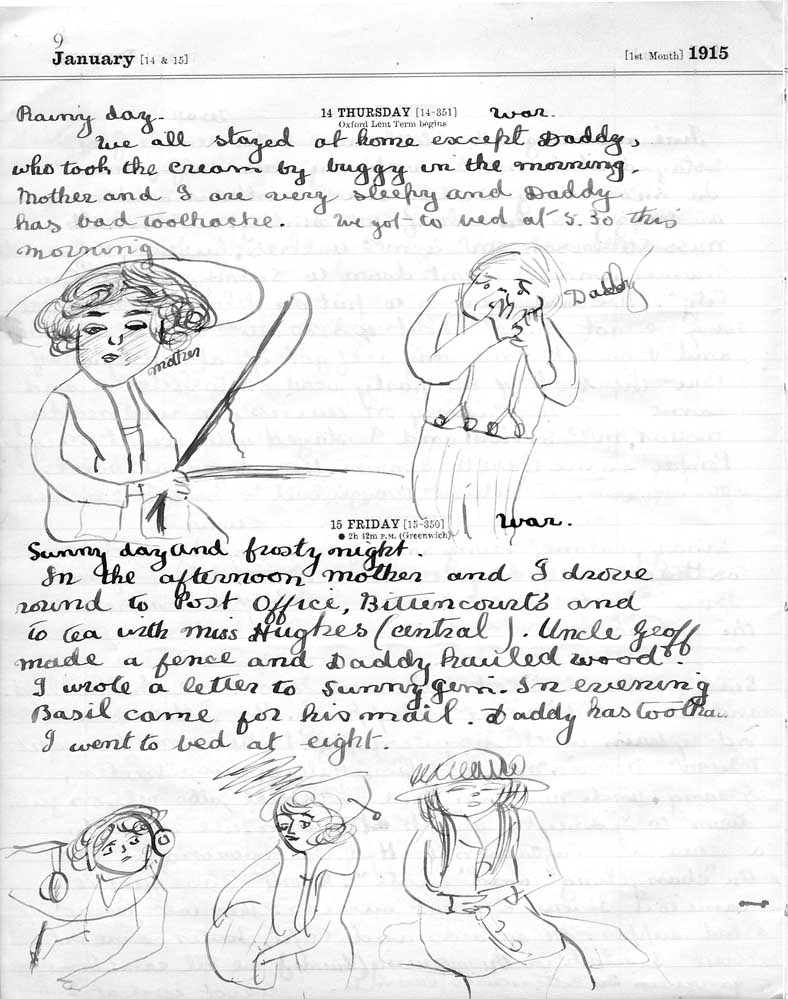 9
January [14 & 15] [1st Month] 1915
Rainy day. 14 THURSDAY [14-351] war.
Oxford Lent Term begins
We all stayed at home except Daddy,
who took the cream by buggy in the morning.
Mother and I are very sleepy and Daddy
has bad toothache. We got to bed at 5.30 this
morning
Daddy
mother
15 FRIDAY [15-350] war.
● 2h 42m P.M. (Greenwich)
Sunny day and frosty night.
In the afternoon mother and I drove
round to Post Office, Bittencourts and
to tea with miss Hughes (central). Uncle Geoff
made a fence and Daddy hauled wood.
I wrote a letter to Sunny Gem. In evening
Basil came for his mail. Daddy has tootha..
I went to bed at eight.